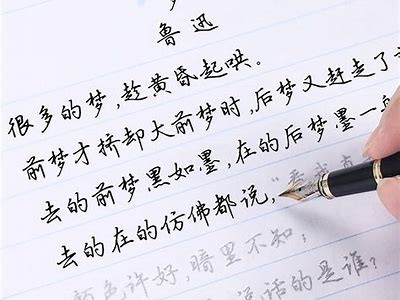 鲁迅
很多的梦,趁黄昏起哄。
前梦才挤却大前梦时,后梦又赶走了
去的前梦黑如墨,在的后梦墨一
去的在的仿佛都说,"看我真
颜色许好,暗里不知;
说话的是谁?